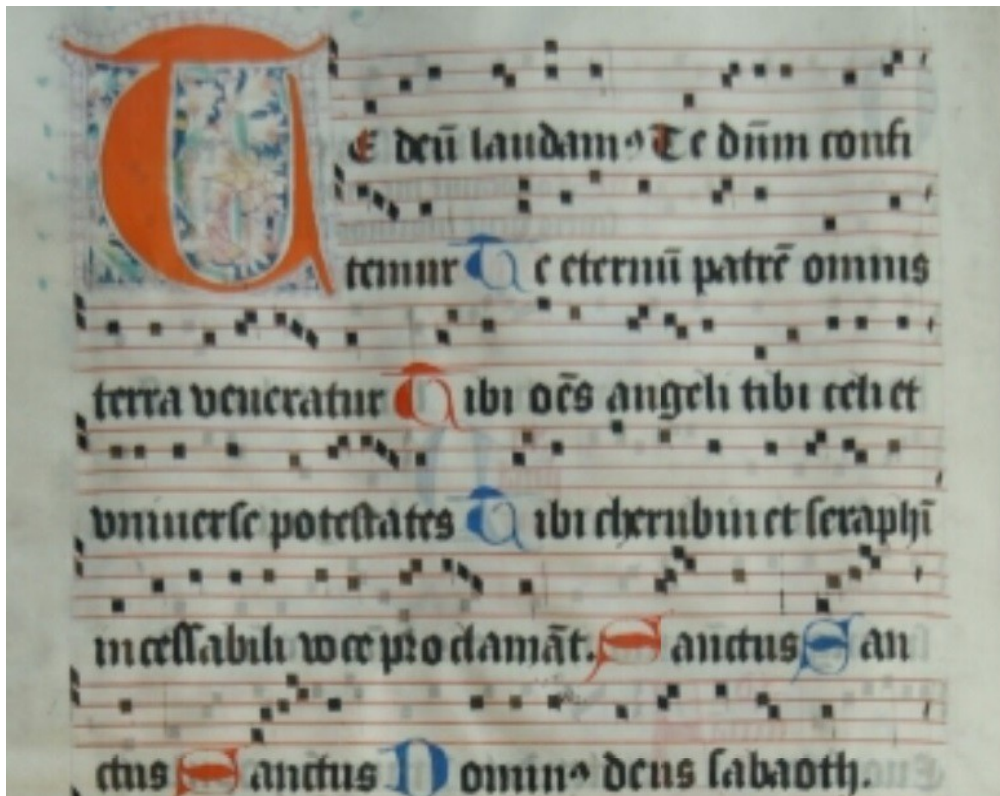 TE deū laudamꝰ Te dūm confi
temur Te eternū patrē omnis
terra veneratur Tibi oēs angeli tibi celi et
vniuerse potestates Tibi cherubin et seraphī
incessabili voce proclamāt. Sanctus San
ctus Sanctus Dominꝰ deus sabaoth.